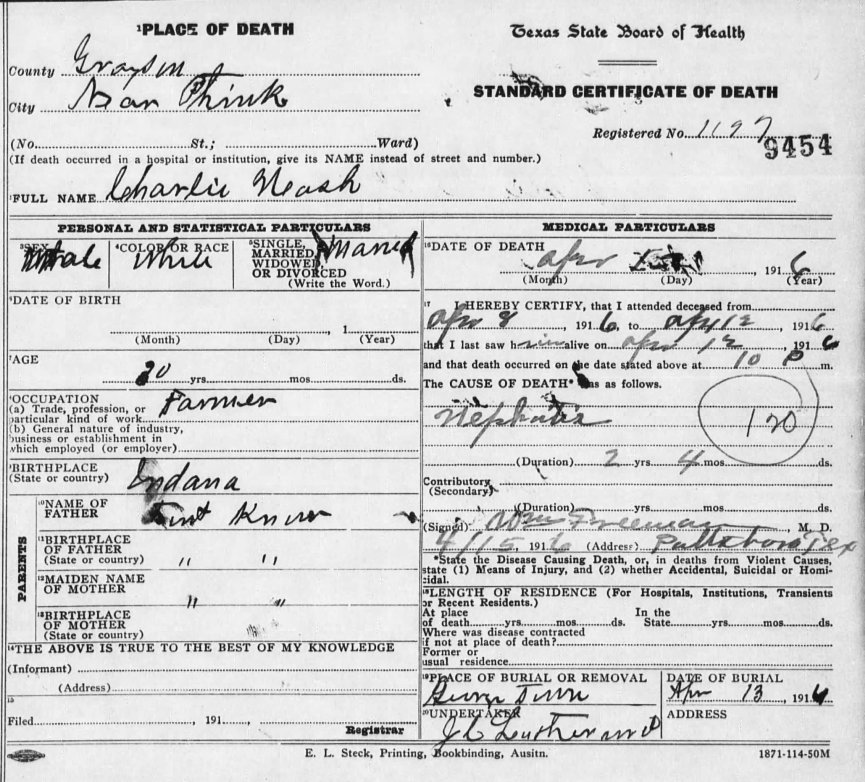 ¹PLACE OF DEATH
Texas State Board of Health
County Grayson
STANDARD CERTIFICATE OF DEATH
City Near
Registered No. 1197
9454
(No. St.; Ward)
(If death occurred in a hospital or institution, give its NAME instead of street and number.)
²FULL NAME Charlie Nash
PERSONAL AND STATISTICAL PARTICULARS
³SEX Male
⁴COLOR OR RACE White
⁵SINGLE, MARRIED, WIDOWED, OR DIVORCED Married
(Write the Word.)
⁶DATE OF BIRTH
, 1
(Month) (Day) (Year)
⁷AGE
yrs. mos. ds.
⁸OCCUPATION
(a) Trade, profession, or particular kind of work Farmer
(b) General nature of industry,
business or establishment in
which employed (or employer)
⁹BIRTHPLACE
(State or country) Indana
PARENTS
¹⁰NAME OF
FATHER Know
¹¹BIRTHPLACE
OF FATHER
(State or country) " "
¹²MAIDEN NAME
OF MOTHER " "
¹³BIRTHPLACE
OF MOTHER
(State or country)
¹⁴THE ABOVE IS TRUE TO THE BEST OF MY KNOWLEDGE
(Informant)
(Address)
15
Filed , 191
Registrar
MEDICAL PARTICULARS
¹⁶DATE OF DEATH
Apr , 1916
(Month) (Day) (Year)
17 I HEREBY CERTIFY, that I attended deceased from
Apr 8 1916, to Apr 12, 1916
that I last saw him alive on Apr 12, 1916
and that death occurred on the date stated above at 10 P m.
The CAUSE OF DEATH* was as follows.
Nephritis
120
(Duration) 2 yrs 4 mos ds.
Contributory
(Secondary)
(Duration) yrs. mos. ds.
(Signed) Wm Freeman, M. D.
4/15, 1916 (Address) Pottsboro Tex
*State the Disease Causing Death, or, in deaths from Violent Causes,
state (1) Means of Injury, and (2) whether Accidental, Suicidal or Homi-
cidal.
¹⁸LENGTH OF RESIDENCE (For Hospitals, Institutions, Transients
or Recent Residents.)
At place In the
of death yrs. mos. ds. State yrs. mos. ds.
Where was disease contracted
if not at place of death?
Former or
usual residence
¹⁹PLACE OF BURIAL OR REMOVAL
George Town
DATE OF BURIAL
Apr 13, 1916
²⁰UNDERTAKER
ADDRESS
E. L. Steck, Printing, Bookbinding, Ausitn.
1871-114-50M